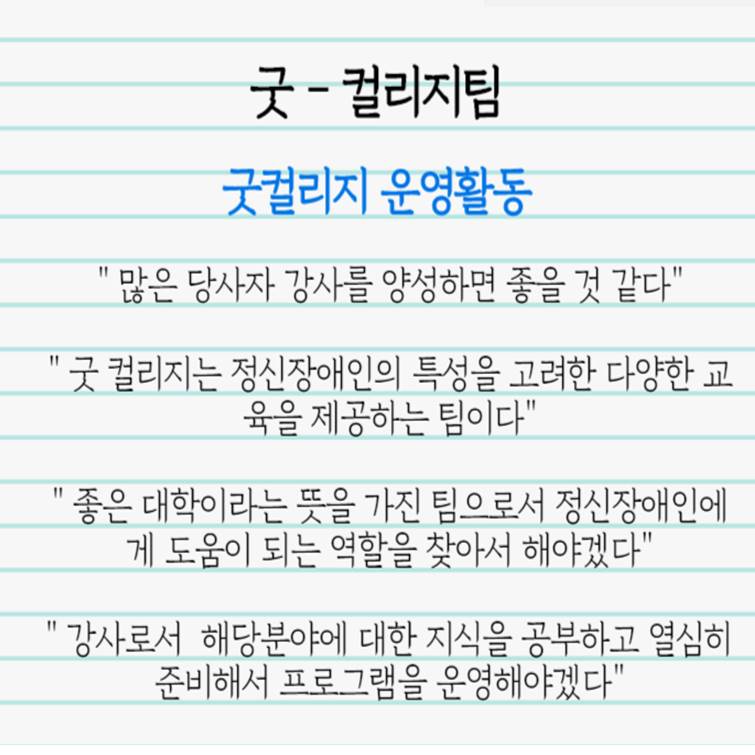 굿 - 컬리지팀
굿컬리지 운영활동
" 많은 당사자 강사를 양성하면 좋을 것 같다"
" 굿 컬리지는 정신장애인의 특성을 고려한 다양한 교
육을 제공하는 팀이다"
" 좋은 대학이라는 뜻을 가진 팀으로서 정신장애인에
게 도움이 되는 역할을 찾아서 해야겠다"
" 강사로서  해당분야에 대한 지식을 공부하고 열심히
준비해서 프로그램을 운영해야겠다"